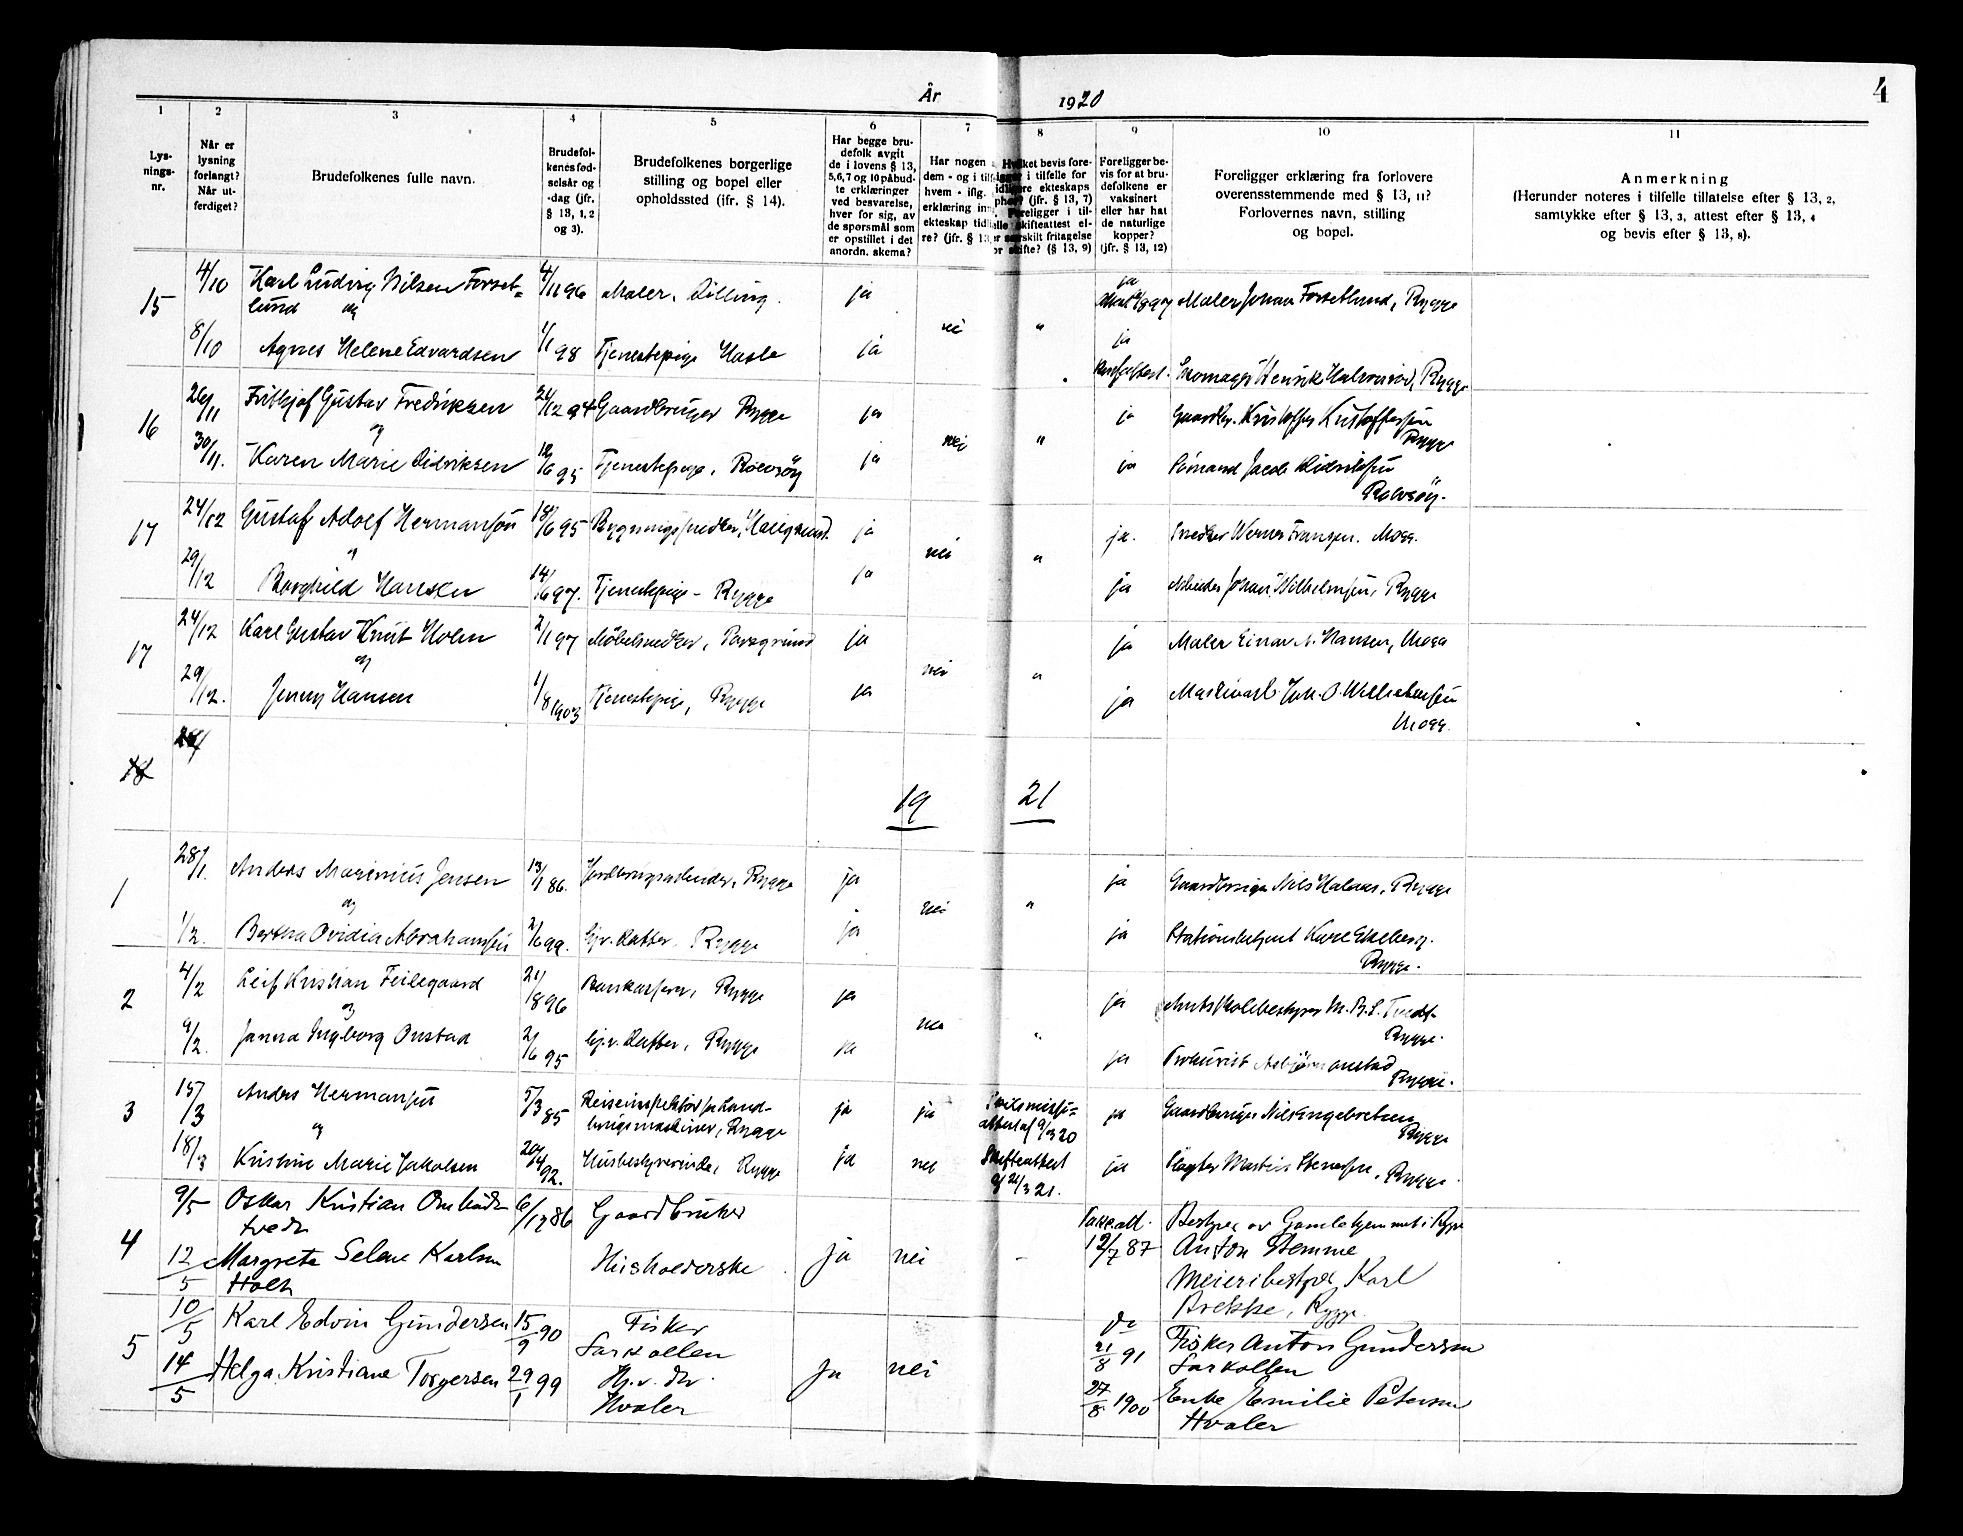 År 1920
4
1 2 3 4 5 6 7 8 9 10 11
Lys-
nings-
nr.
Når er
lysning
forlangt?
Når ut-
ferdiget?
Brudefolkenes fulle navn.
Brudefol-
kenes fød-
selsår og
-dag (jfr.
§ 13, 1, 2
og 3).
Brudefolkenes borgerlige
stilling og bopel eller
opholdssted (ifr. § 14).
Har begge bru-
defolk avgit
de i lovens § 13,
5,6,7 og 10 påbud-
te erklæringer
ved besvarelse,
hver for sig, av
de spørsmål som
er opstillet i det
anordn. skema?
Har nogen
dem - og i tilf
hvem - iflg.
erklæring inn
ekteskap tid
re? (jfr. § 13,
ket bevis fore-
i tilfelle for
ekteskaps
(jfr. § 13, 7)
Foreligger i til-
skifteattest el-
særskilt fritagelse
skifte? (§ 13, 9)
Foreligger be-
vis for at bru-
defolkene er
vaksinert
eller har hat
de naturlige
kopper?
(jfr. § 13, 12)
Foreligger erklæring fra forlovere
overensstemmende med § 13, 11?
Forlovernes navn, stilling
og bopel.
Anmerkning
(Herunder noteres i tilfelle tillatelse efter § 13, 2,
samtykke efter § 13, 3, attest efter § 13, 4
og bevis efter § 13, 8).
15 4/10 Karl Ludvig Nilsen Forset-
lund og 4/11 96 Maler, Dilling. ja ja Maler Johan Forsetlund, Rygge
nei "
8/10 Agnes Helene Edvardsen 1/1 98 Tjenestepige Hasle ja ja
Skomager Henrik Halvorsrød, Rygge
16 26/11 Frithjof Gustav Fredriksen 24/12 94 Gaardbruger Rygge ja ja Gaardbr. Kristoffer Kristoffersen
og nei " Rygge
30/11. Karen Marie Didriksen 12/6 95 Tjenestepige, Rolvsöy ja ja Sømand Jacob Didriksen
Rolvsöy.
17 24/12 Gustaf Adolf Hermansen 18/6 95 ja ja. Snedker Werner Fransen. Moss.
" nei "
29/12 Borghild Hansen 14/6 97. Tjenestepige - Rygge ja ja Arbeider Johan Wilhelmsen, Rygge
17 24/12 Karl Gustav Knut Holm 2/1 97 Möbelsnedker, Porsgrund ja ja Maler Einar N. Hansen, Moss
og nei "
29/12. Jenny Hansen 1/8 1903 Tjenestepige, Rygge ja ja Maskinarb. Joh. O. Wilhelmsen
Moss.
18
19 21
1 28/1. Anders Marinius Jensen 13/1 86. Jordbrugsarbeider, Rygge ja ja Gaardbruger Nils Halaas, Rygge
og nei "
1/2. Bertha Ovidia Abrahamsen 2/6 99. Hj.v. Datter, Rygge ja ja Stationsbetjent Karl Ekeberg.
Rygge.
2 4/2 Leif Kristian Feilegaard 21/8 96 Bankkasserer, Rygge ja ja Amtsskolebestyrer M. B. L. Tvedt
og nei " Rygge.
9/2. Janna Ingborg Onstad 2/6 95 Hj.v. Datter, Rygge ja ja Prokurist Asbjörn Onstad
Rygge.
3 15/3 Anders Hermansen 5/3 85 Reiseinspektör for Land-
brugsmaskiner, Rygge ja ja Skilsmisse-
attest af 9/3 20 ja Gaardbruger Nils Engebretsen
Rygge
og
18/3 Kristine Marie Jakobsen 20/4 92. Husbestyrerinde, Rygge ja nei Skifteattest
af 3 21. ja Slagter Martin Stenersen, Rygge.
4 9/5 Oskar Kristian Ombuds-
tvedt 6/12 86 Gaardbruker Vakc.att. Bestyrer av Gamlehjemmet i Rygge
12/5 Margrete Selene Karlsen
Holt Husholderske ja nei - 12/7 87 Anton Stemme
Meieribestyrer Karl
Brekke, Rygge.
5 10/5 Karl Edvin Gundersen 15/9 90 Fisker
Larkollen do
21/8 91 Fisker Anton Gundersen
Larkollen
14/5 Helga Kristiane Torgersen 29/1 99 Hj.v. dtr.
Hvaler ja nei 27/8 1900 Enke Emilie Petersen
Hvaler